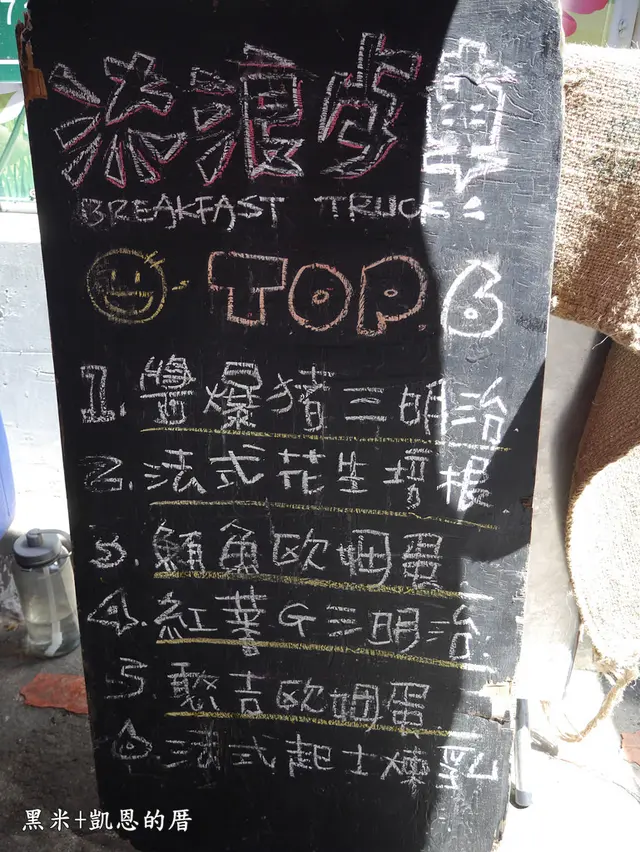 流浪卡車
BREAKFAST TRUCK
TOP.6
1. 醬爆猪三明治
2. 法式花生培根
3. 鮪魚欧姆蛋
4. 紅薯G三明治
5. 憨吉欧姆蛋
6. 法式起士煉乳
黑米+凱恩的厝